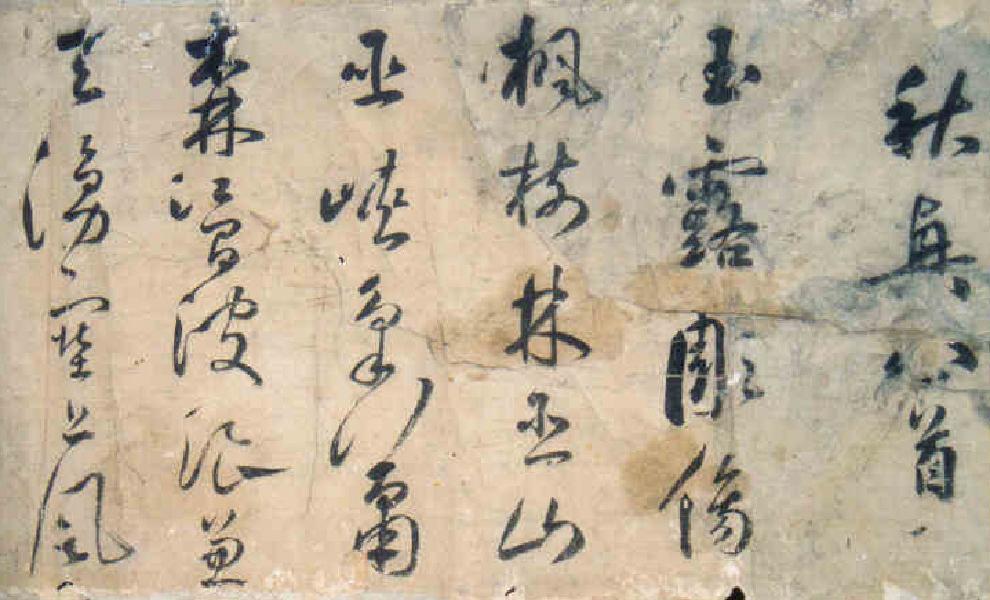 秋興八首
玉露彫傷
楓樹林巫山
巫峽氣蕭
森江間波浪兼
天湧塞上風